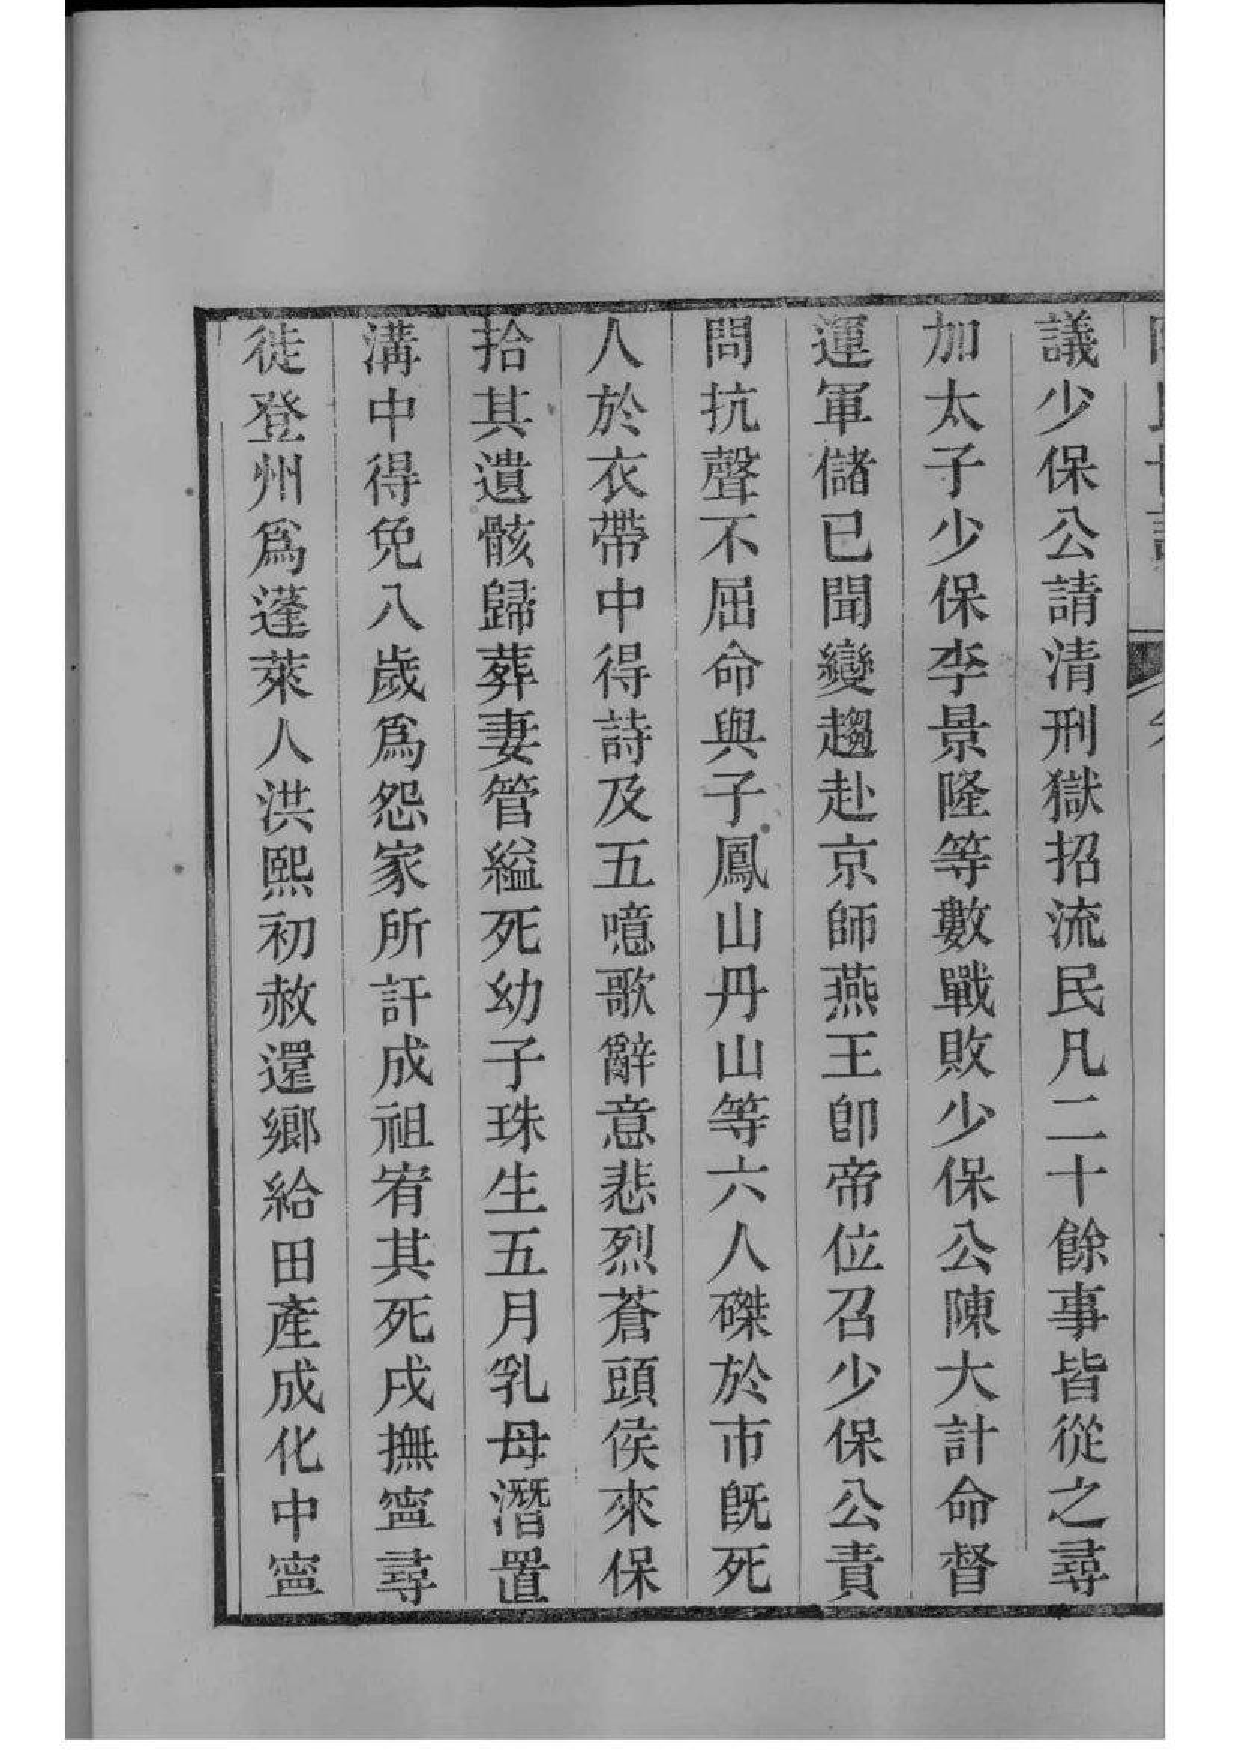 議少保公請清刑獄招流民凡二十餘事皆從之尋
加太子少保李景隆等數戰敗少保公陳大計命督
運軍儲已聞變趨赴京師燕王卽帝位召少保公責
問抗聲不屈命與子鳳山丹山等六人磔於市旣死
人於衣帶中得詩及五噫歌辭意悲烈蒼頭侯來保
拾其遺骸歸葬妻管縊死幼子珠生五月乳母潛置
溝中得免八歲爲怨家所訐成祖宥其死戍撫寧尋
徙登州爲蓬萊人洪熙初赦還鄉給田產成化中寧